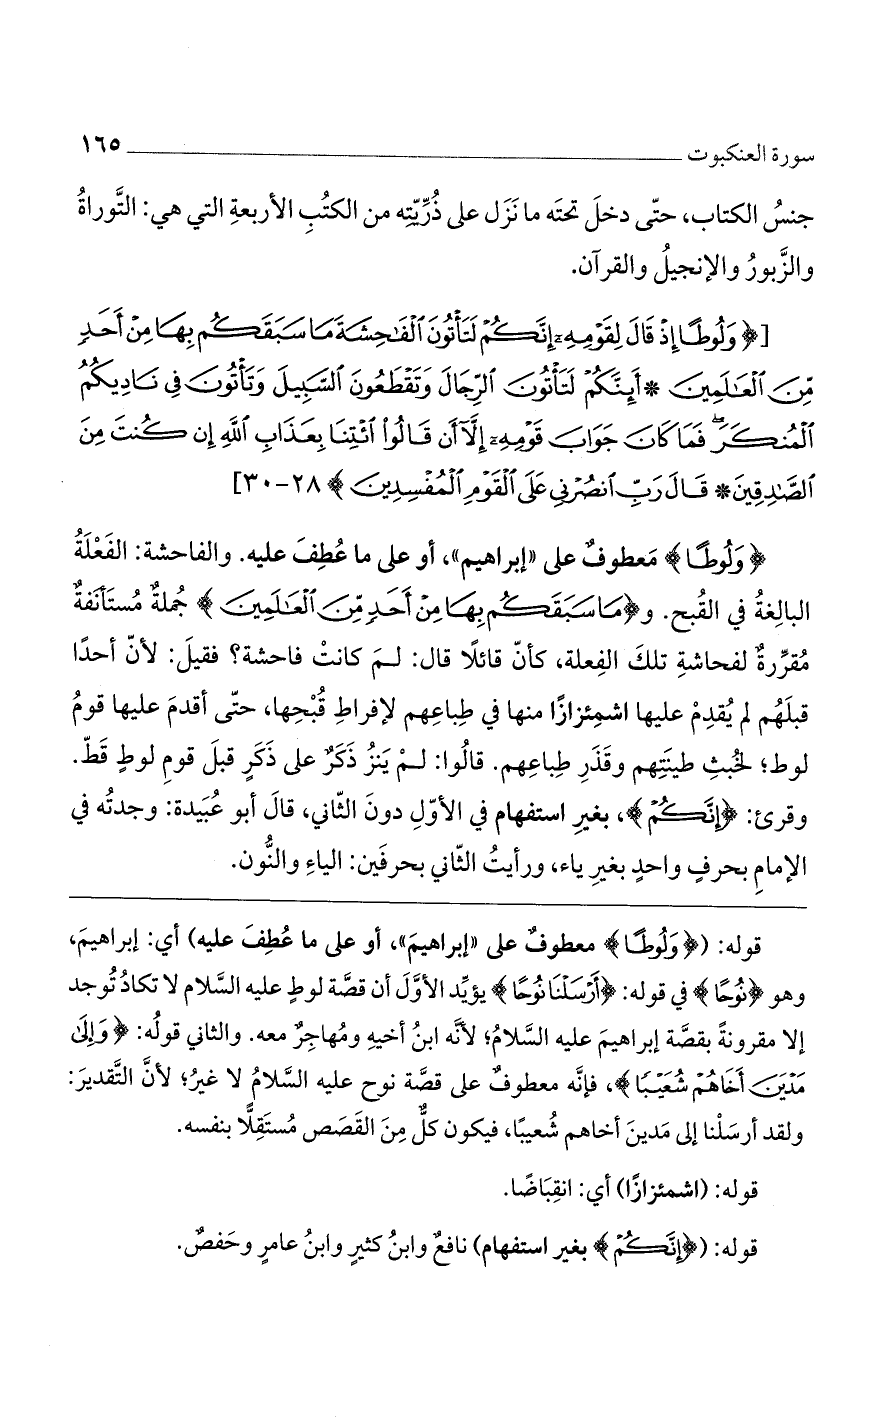 سورة العنكبوت ١٦٥
جنسُ الكتاب، حتّى دخلَ تحتَه ما نَزَل على ذُرِّيّتِه من الكتُبِ الأربعةِ التي هي: التَّوراةُ
والزَّبورُ والإنجيلُ والقرآن.
[﴿وَلُوطًا إِذْ قَالَ لِقَوْمِهِۦٓ إِنَّكُمْ لَتَأْتُونَ ٱلْفَٰحِشَةَ مَا سَبَقَكُم بِهَا مِنْ أَحَدٍ
مِّنَ ٱلْعَٰلَمِينَ * أَئِنَّكُمْ لَتَأْتُونَ ٱلرِّجَالَ وَتَقْطَعُونَ ٱلسَّبِيلَ وَتَأْتُونَ فِى نَادِيكُمُ
ٱلْمُنكَرَ ۖ فَمَا كَانَ جَوَابَ قَوْمِهِۦٓ إِلَّآ أَن قَالُوا۟ ٱئْتِنَا بِعَذَابِ ٱللَّهِ إِن كُنتَ مِنَ
ٱلصَّٰدِقِينَ * قَالَ رَبِّ ٱنصُرْنِى عَلَى ٱلْقَوْمِ ٱلْمُفْسِدِينَ﴾ ٢٨-٣٠]
﴿وَلُوطًا﴾ مَعطوفٌ على «إبراهيم»، أو على ما عُطِفَ عليه. والفاحشة: الفَعْلَةُ
البالِغةُ في القُبح. و﴿مَا سَبَقَكُم بِهَا مِنْ أَحَدٍ مِّنَ ٱلْعَٰلَمِينَ﴾ جُملةٌ مُستَأنَفةٌ
مُقرِّرةٌ لفحاشةِ تلكَ الفِعلة، كأنّ قائلًا قال: لـمَ كانتْ فاحشة؟ فقيلَ: لأنّ أحدًا
قبلَهُم لم يُقدِمْ عليها اشمِئزازًا منها في طِباعِهم لإفراطِ قُبْحِها، حتّى أقدمَ عليها قومُ
لوط؛ لخُبثِ طينَتِهم وقَذَرِ طِباعِهم. قالُوا: لـمْ يَنزُ ذَكَرٌ على ذَكَرٍ قبلَ قومِ لوطٍ قَطّ.
وقرئ: ﴿إِنَّكُمْ﴾، بغيرِ استفهام في الأوّلِ دونَ الثّاني، قالَ أبو عُبَيدة: وجدتُه في
الإمامِ بحرفٍ واحدٍ بغيرِ ياء، ورأيتُ الثّاني بحرفَين: الياءِ والنُّون.
قوله: (﴿وَلُوطًا﴾ معطوفٌ على «إبراهيمَ»، أو على ما عُطِفَ عليه) أي: إبراهيمَ،
وهو ﴿نُوحًا﴾ في قوله: ﴿أَرْسَلْنَا نُوحًا﴾ يؤيِّد الأوَّلَ أن قصَّة لوطٍ عليه السَّلام لا تكادُ تُوجد
إلا مقرونةً بقصَّة إبراهيمَ عليه السَّلامُ؛ لأنَّه ابنُ أخيهِ ومُهاجِرٌ معه. والثاني قولُه: ﴿وَإِلَىٰ
مَدْيَنَ أَخَاهُمْ شُعَيْبًا﴾، فإنَّه معطوفٌ على قصَّة نوح عليه السَّلامُ لا غيرُ؛ لأنَّ التَّقديرَ:
ولقد أرسَلْنا إلى مَدينَ أخاهم شُعيبًا، فيكون كلٌّ مِنَ القَصَص مُستَقِلًّا بنفسه.
قوله: (اشمئزازًا) أي: انقِبَاضًا.
قوله: (﴿إِنَّكُمْ﴾ بغير استفهام) نافعٌ وابنُ كثيرٍ وابنُ عامرٍ وحَفصٌ.